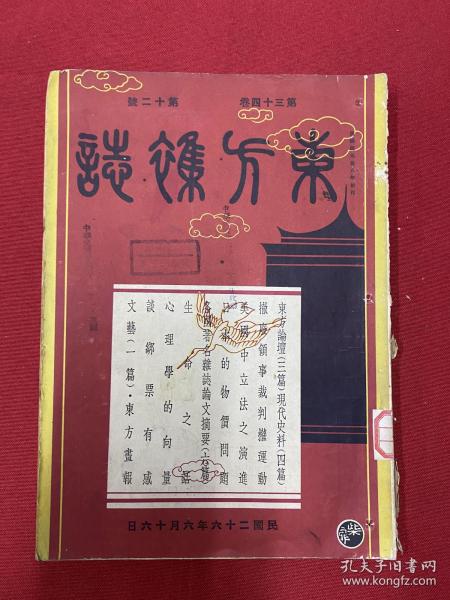 第三十四卷 第十二號
東方雜誌
東方論壇(三篇)現代史料(四篇)
撤廢領事裁判權運動
美國中立法之演進
日本的物價問題
各國著名雜誌論文摘要(六篇)
生命之話
心理學的向量
談鄉票有感
文藝(一篇)·東方畫報
民國二十六年六月十六日
孔夫子旧书网
www.kongfz.com